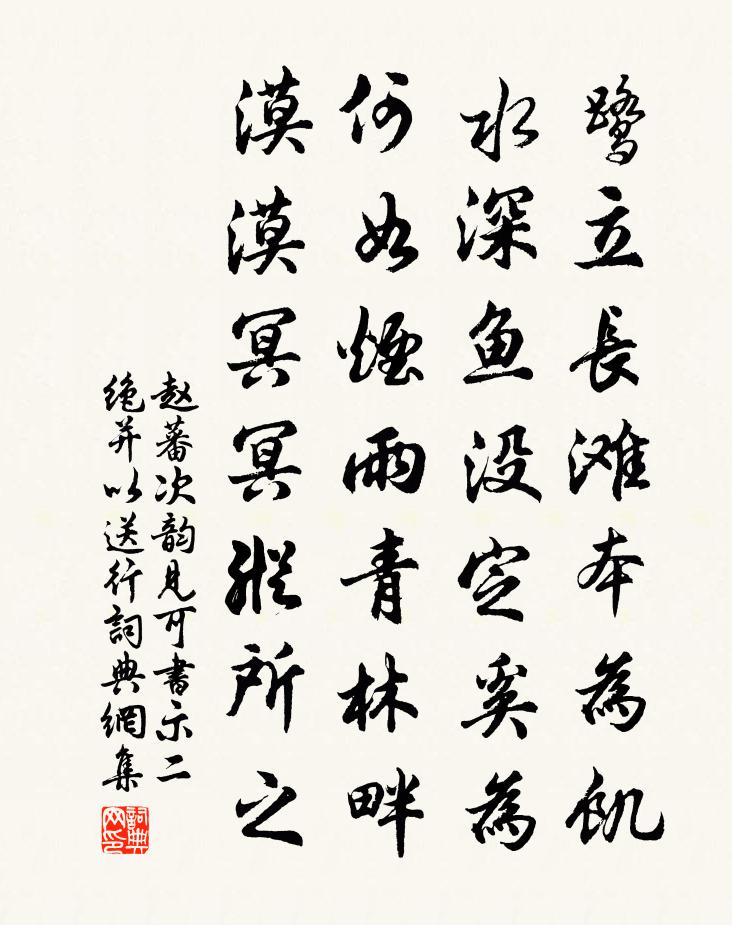 鹭立長滩本為飢
水深鱼没定奚為
何如煙雨青林畔
漠漠冥冥縱所之
赵蕃次韵見可書示二
绝并以送行詞典網集
詞典
网印